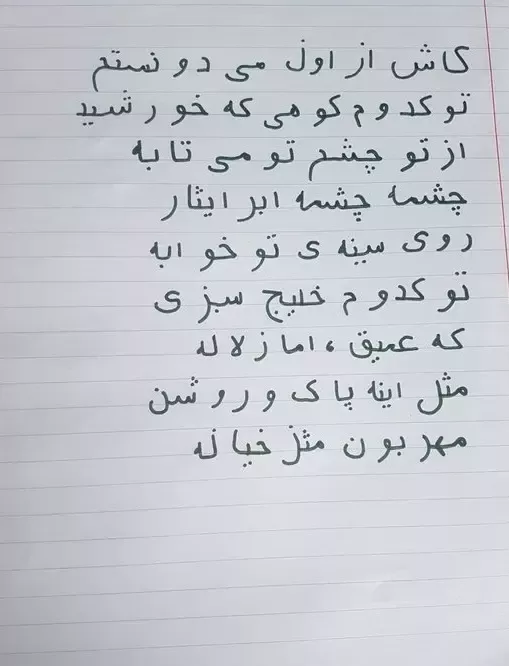 کاش از اول می دونستم
تو کدوم کوهی که خورشید
از تو چشم تو می تابه
چشمه چشمه ابر ایثار
روی سینه ی تو خوابه
تو کدوم خلیج سبزی
که عمیق ، اما زلاله
مثل اینه پاک و روشن
مهربون مثل خیاله